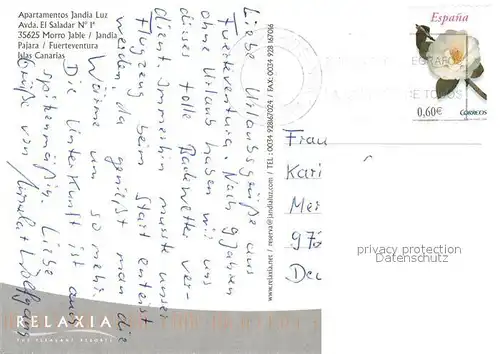 Apartamentos Jandia Luz
Avda. El Saladar Nº 1ª
35625 Morro Jable / Jandia
Pajara / Fuerteventura
Islas Canarias
Liebe Urlaubsgrüße aus
Fuerteventura. Nach 9 Jahren
ohne Urlaub haben wir uns
dieses tolle Badewetter ver-
dient. Immerhin musste unser
Flugzeug beim Start enteist
werden, da genießt man die
Wärme um so mehr.
Die Unterkunft ist auch
spitzenmäßig. Liebe
Grüße von
www.relaxia.net / reserva@jandialuz.com / TEL.: 0034 928167024 / FAX: 0034 928 167016
España
0,60€
CORREOS
Frau
Kari
Mer
972
De
privacy protection
Datenschutz
RELAXIA
THE PLEASANT RESORTS